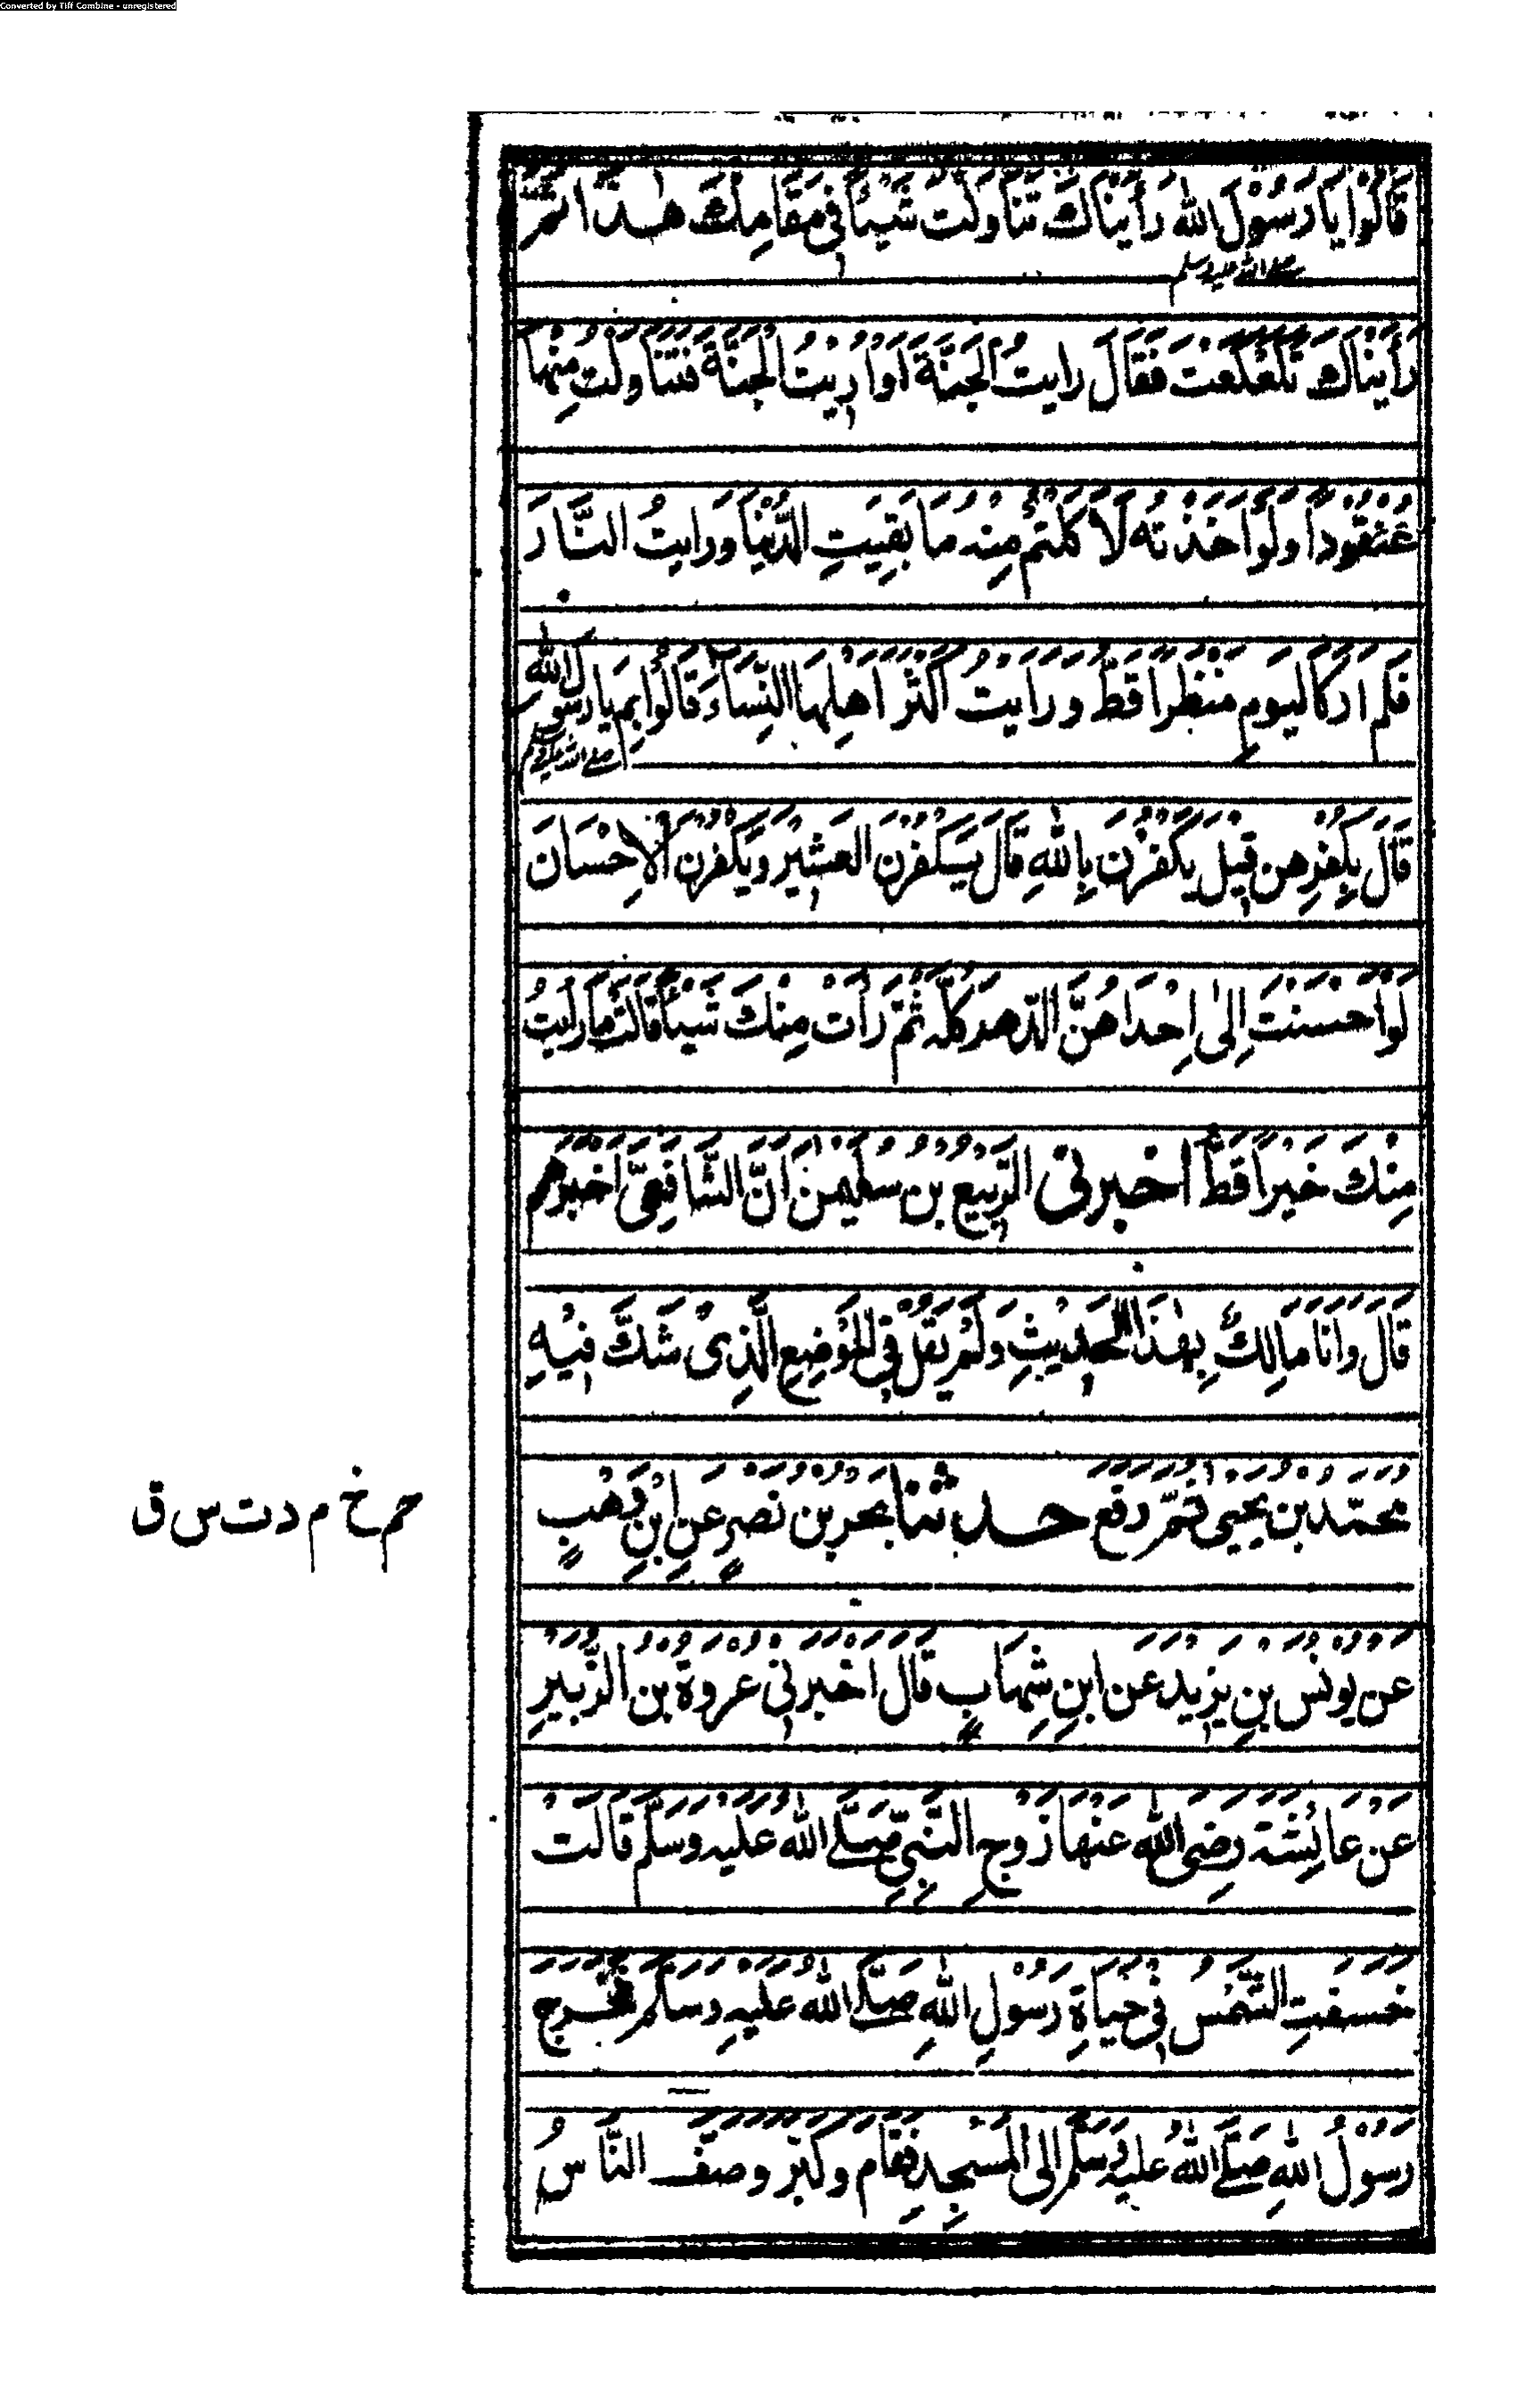 Converted by Tiff Combine - unregistered
قَالُوْا يَا رَسُوْلَ الله رَأَيْنَاكَ تَنَاوَلْتَ شَيْئًا فِي مَقَامِكَ هٰذَا ثُمَّ
صلى الله عليه وسلم
رَأَيْنَاكَ تَكَعْكَعْتَ فَقَالَ رَايتُ الْجَنَّةَ اَوْ اُرِيْتُ الْجَنَّةَ فَتَنَاوَلْتُ مِنْهَا
عُنْقُوْدًا وَلَوْ اَخَذْتُه لَاَكَلْتُمْ مِنْه مَا بَقِيَتِ الدُّنْيَا وَرَايتُ النَّارَ
فَلَمْ اَرَ كَالْيَوْمِ مَنْظَرًا قَطُّ وَرَاَيْتُ اَكْثَرَ اَهْلِهَا النِّسَاءَ قَالُوْا بِمَ يَا رَسُولَ اللهِ
صلى الله عليه وسلم
قَالَ بِكُفْرِهِنَّ قِيْلَ يَكْفُرْنَ بِاللهِ قَالَ يَكْفُرْنَ الْعَشِيْرَ وَيَكْفُرْنَ الْاِحْسَانَ
لَوْ اَحْسَنْتَ اِلٰى اِحْدَاهُنَّ الدَّهْرَ كُلَّه ثُمَّ رَأَتْ مِنْكَ شَيْئًا قَالَتْ مَا رَأَيْتُ
مِنْكَ خَيْرًا قَطُّ اخبرنى الرَّبِيْعُ بْنُ سُلَيْمٰنَ اَنَّ الشَّافِعِيَّ اَخْبَرَهُمْ
قَالَ وَاَنَا مَالِكٌ بِهٰذَا الْحَدِيْثِ وَلَمْ يَقُلْ فِي الْمَوْضِعِ الَّذِىْ شَكَّ فِيْهِ
مُحَمَّدُ بْنُ يَحْيٰى ثُمَّ رَفَعَ حدثنا بَحْرُ بْنُ نَصْرٍ عَنِ ابْنِ وَهْبٍ
حم خ م د ت س ق
عَنْ يُوْنُسَ بْنِ يَزِيْدَ عَنِ ابْنِ شِهَابٍ قَالَ اَخْبَرَنِي عُرْوَةُ بْنُ الزُّبَيْرِ
عَنْ عَائِشَةَ رَضِيَ اللهُ عَنْهَا زَوْجِ النَّبِيِّ صَلَّى اللهُ عَلَيْهِ وَسَلَّمَ قَالَتْ
خَسَفَتِ الشَّمْسُ فِي حَيَاةِ رَسُوْلِ اللهِ صَلَّى اللهُ عَلَيْهِ وَسَلَّمَ فَخَرَجَ
رَسُوْلُ اللهِ صَلَّى اللهُ عَلَيْهِ وَسَلَّمَ اِلَى الْمَسْجِدِ فَقَامَ وَكَبَّرَ وَصَفَّ النَّاسُ